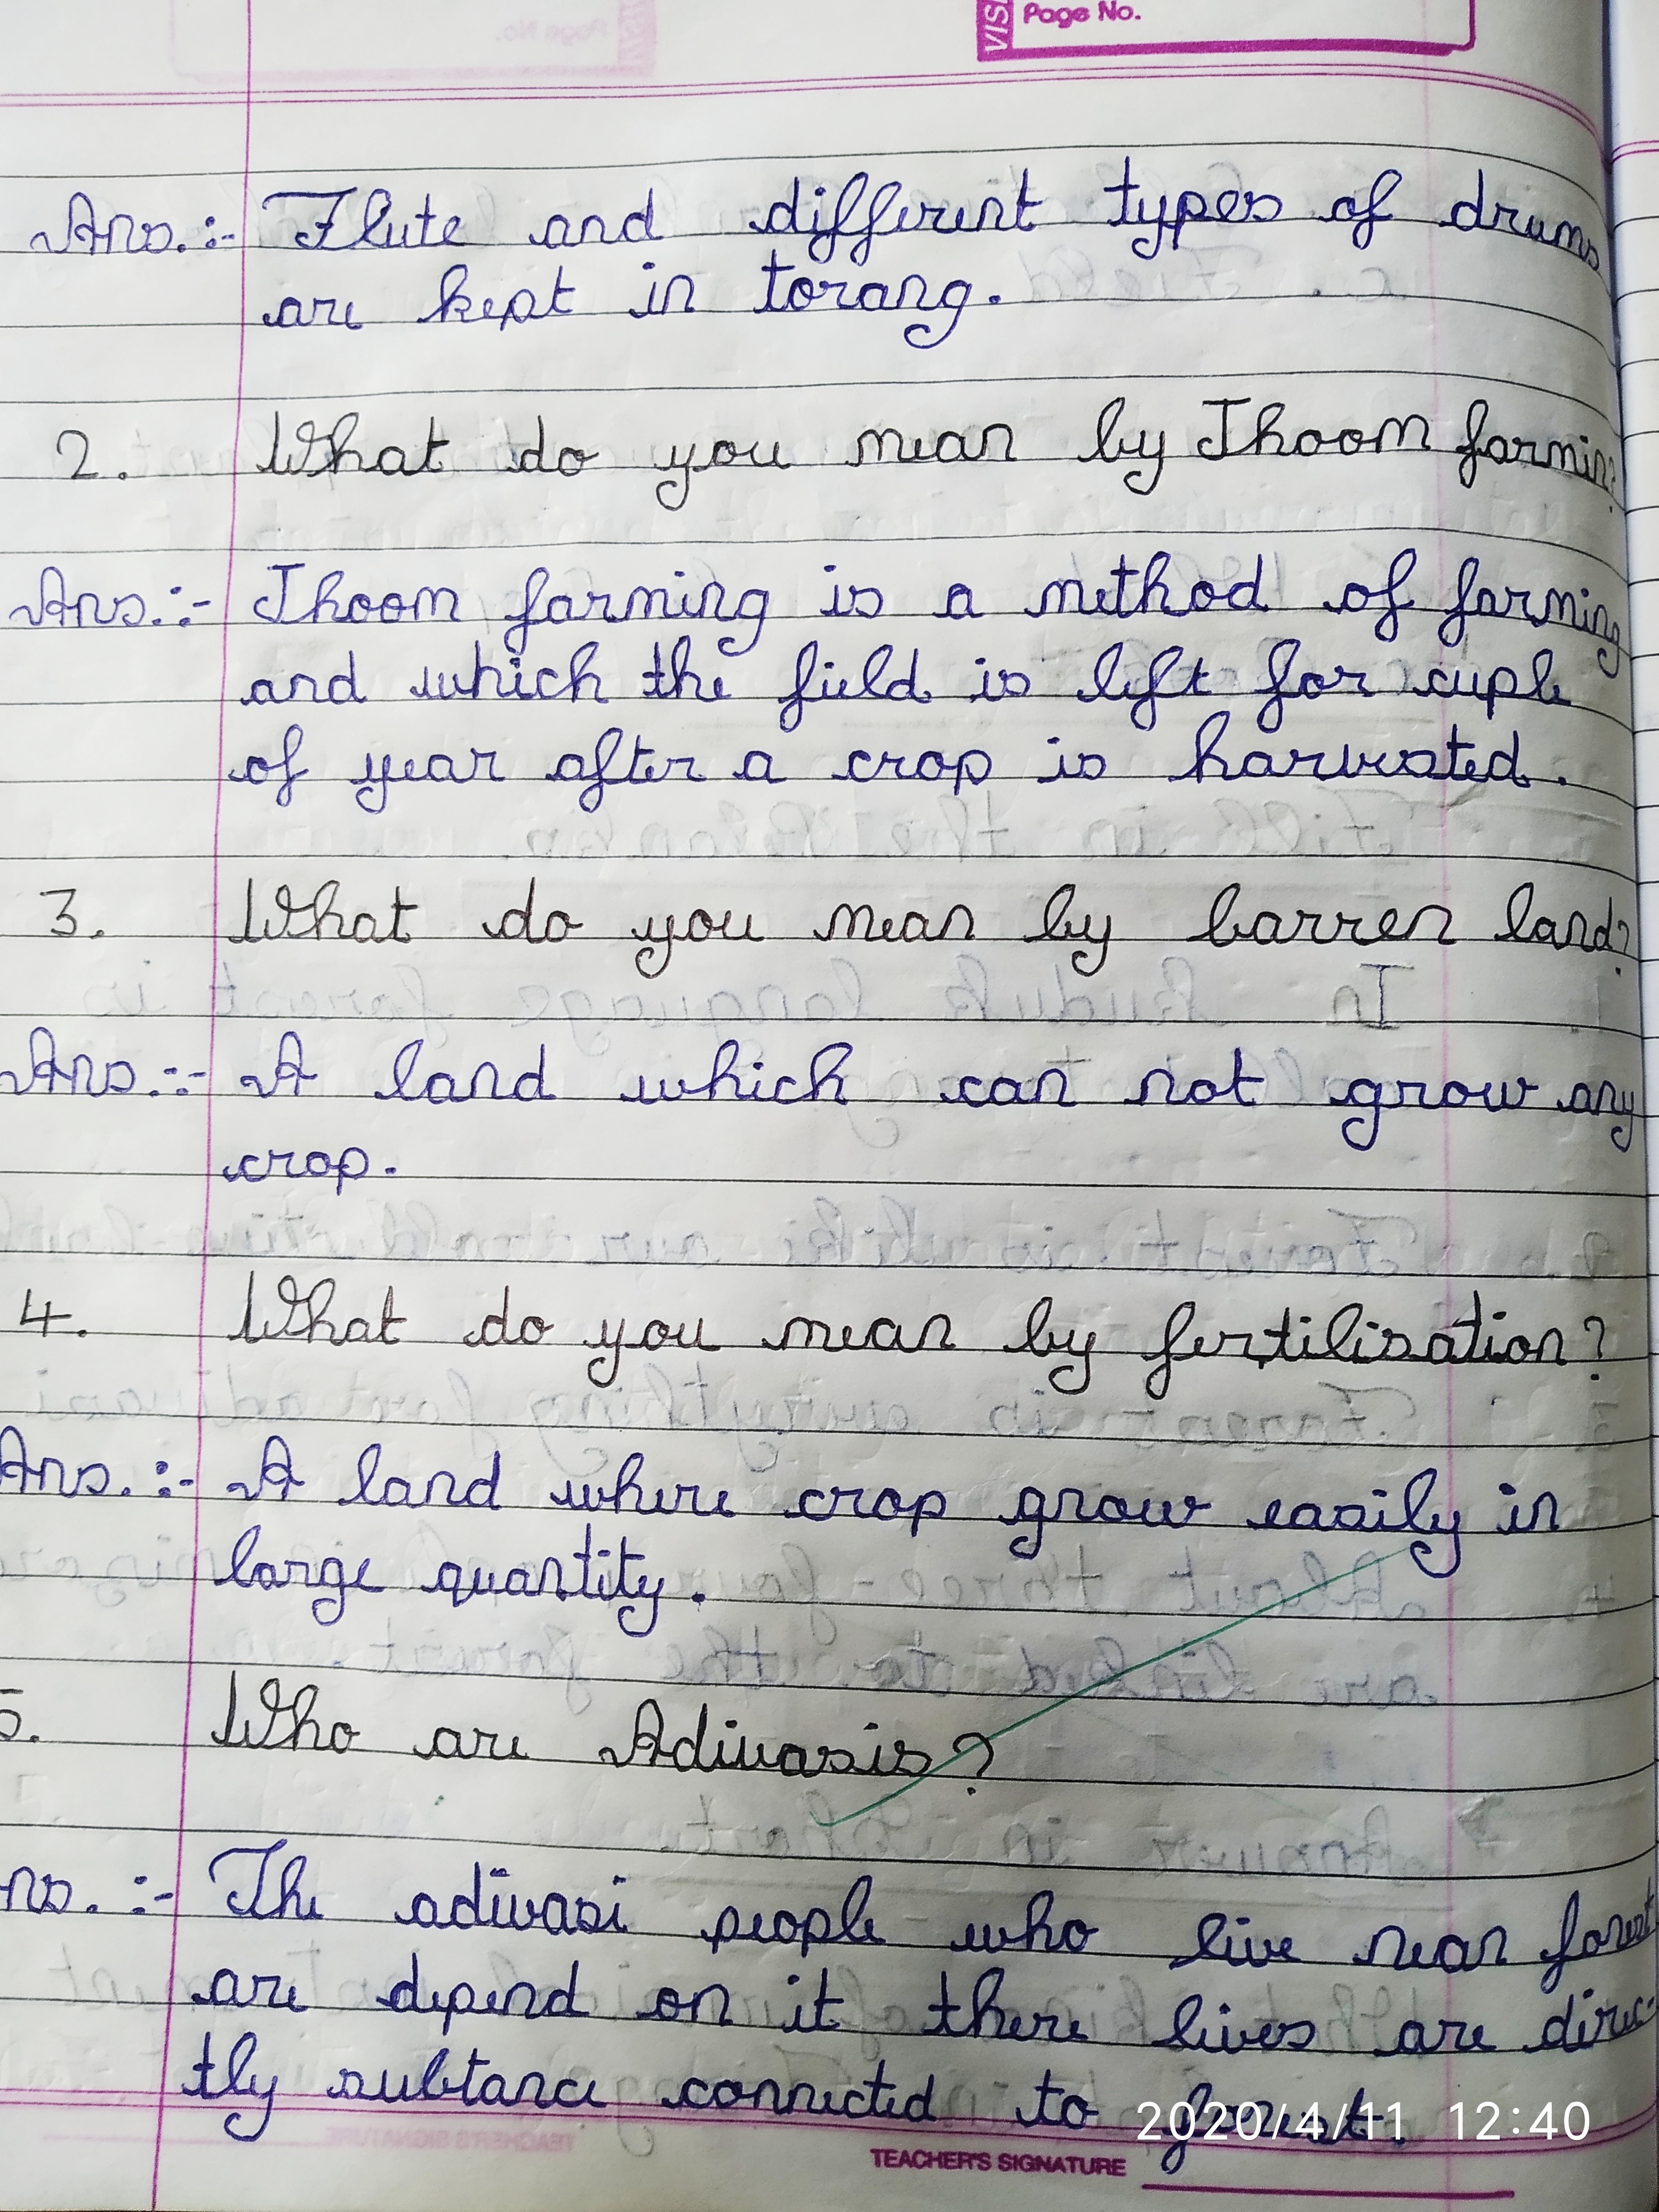 Page No.
Ans.:- Flute and different types of drums
are kept in torang.
2. What do you mean by Jhoom farming?
Ans.:- Jhoom farming is a method of farming
and which the field is left for cuple
of year after a crop is harvested.
3. What do you mean by barren land?
Ans.:- A land which can not grow any
crop.
4. What do you mean by fertilisation?
Ans.:- A land where crop grow easily in
large quantity.
5. Who are Adivasis?
Ans.:- The adivasi people who live near forest
are depend on it there lives are direc-
tly subtance connected to forest.
2020/4/11 12:40
TEACHER'S SIGNATURE